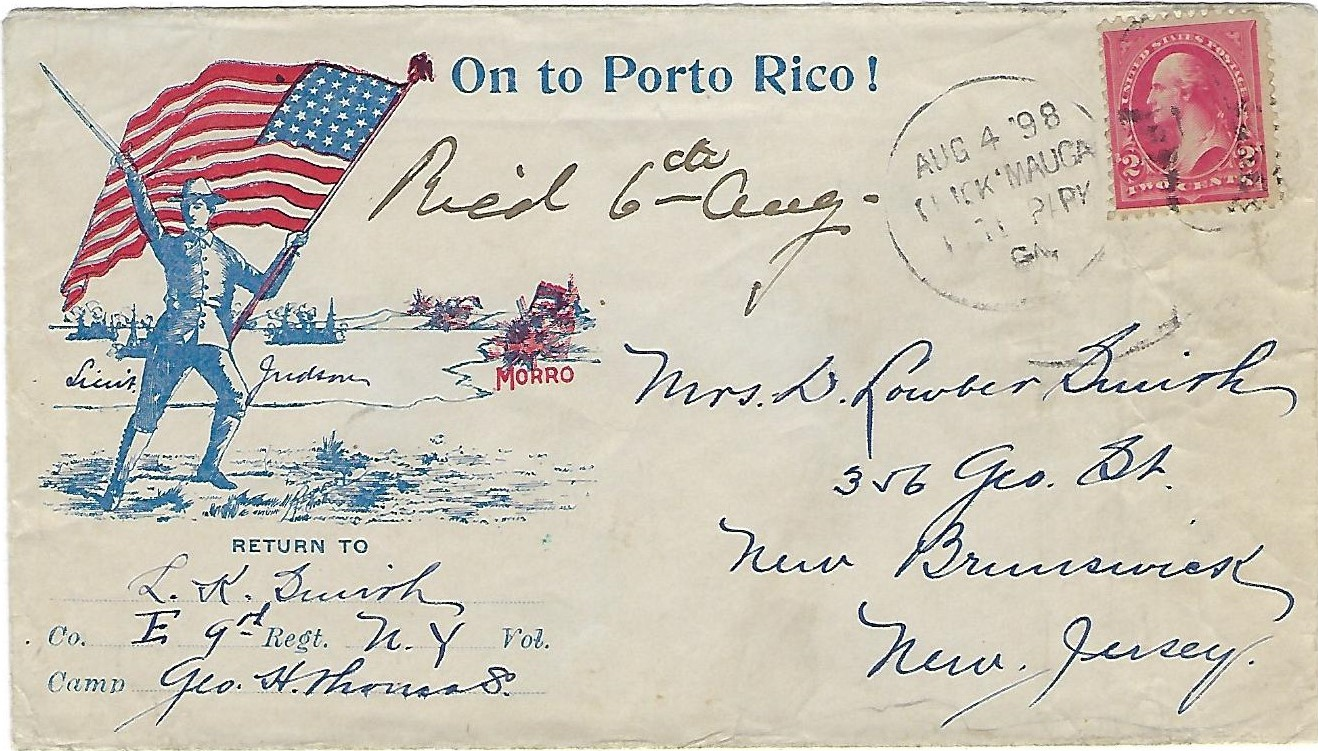 On to Porto Rico!
Rec'd 6th Aug.
AUG 4 '98
K'MAUGA
GA.
UNITED STATES POSTAGE
2 2
TWO CENTS
Lieut. Judson
MORRO
Mrs. D. Lowber Smith
356 Geo. St.
New Brunswick
New Jersey.
RETURN TO
L. K. Smith
Co. E 9rd Regt. N.Y Vol.
Camp Geo. H. Thomas